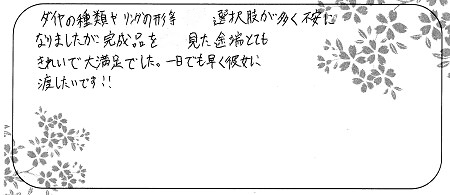 ダイヤの種類やリングの形等 選択肢が多く不安に
なりましたが完成品を 見た途端とても
きれいで大満足でした。一日でも早く彼女に
渡したいです!!